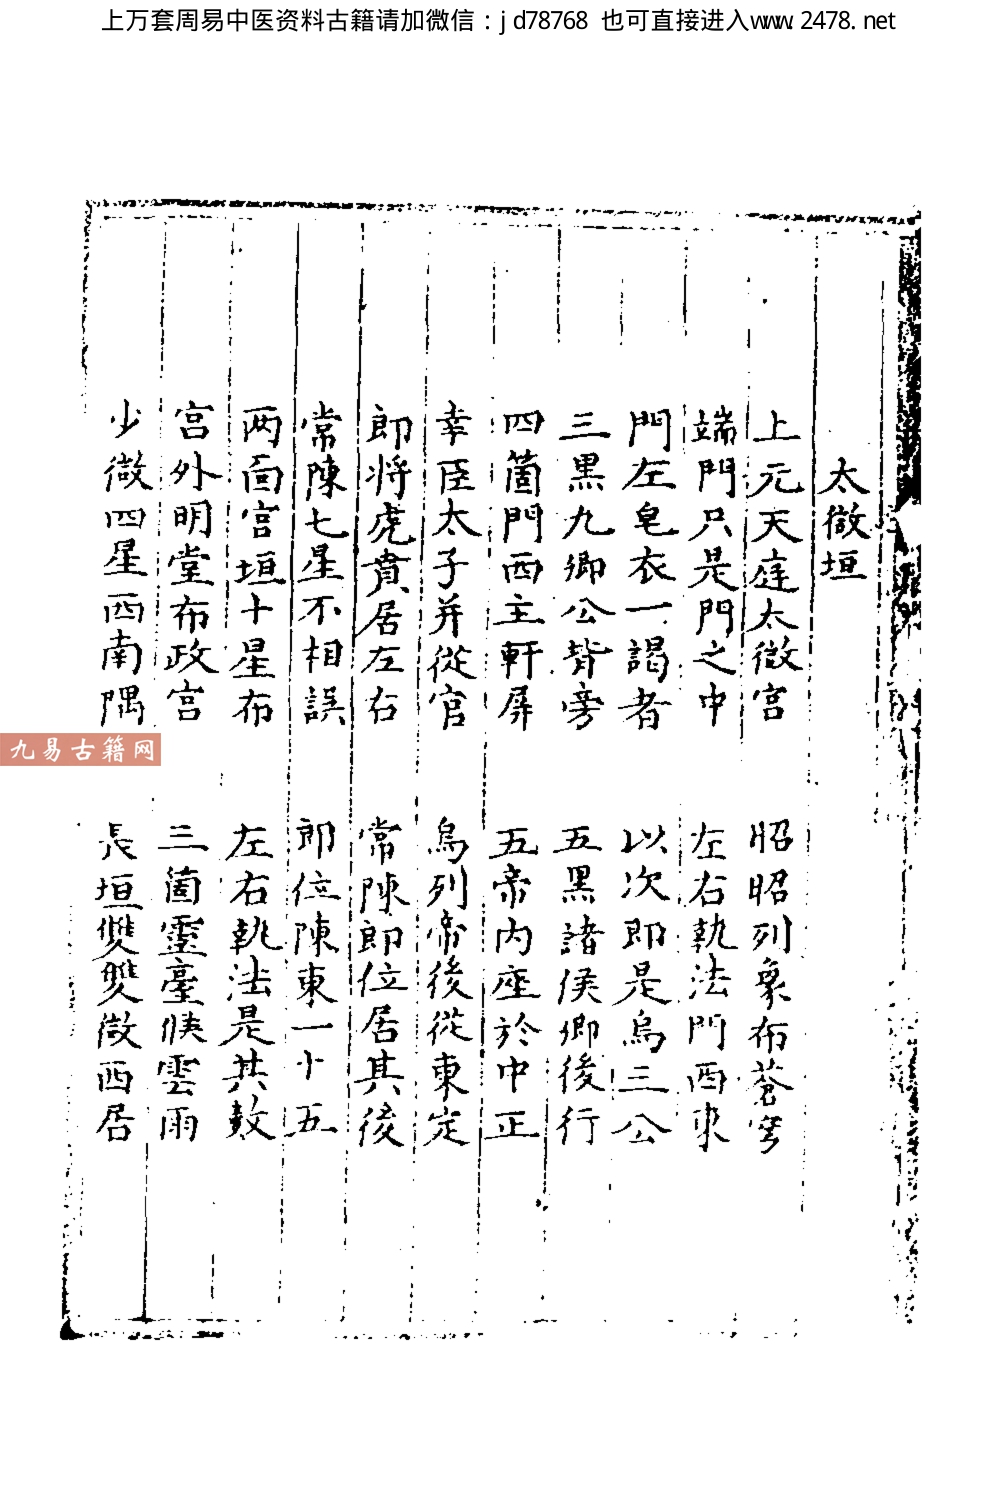 上万套周易中医资料古籍请加微信：jd78768 也可直接进入www.2478.net
太微垣
上元天庭太微宫 昭昭列象布蒼穹
端門只是門之中 左右執法門西東
門左皂衣一謁者 以次即是烏三公
三黑九卿公背旁 五黑諸侯卿後行
四箇門西主軒屏 五帝内座於中正
幸臣太子并從官 烏列帝後從東定
郎将虎賁居左右 常陳郎位居其後
常陳七星不相誤 郎位陳東一十五
两面宫垣十星布 左右執法是其數
宫外明堂布政宫 三箇靈臺候雲雨
少微四星西南隅 長垣雙雙微西居
九易古籍网